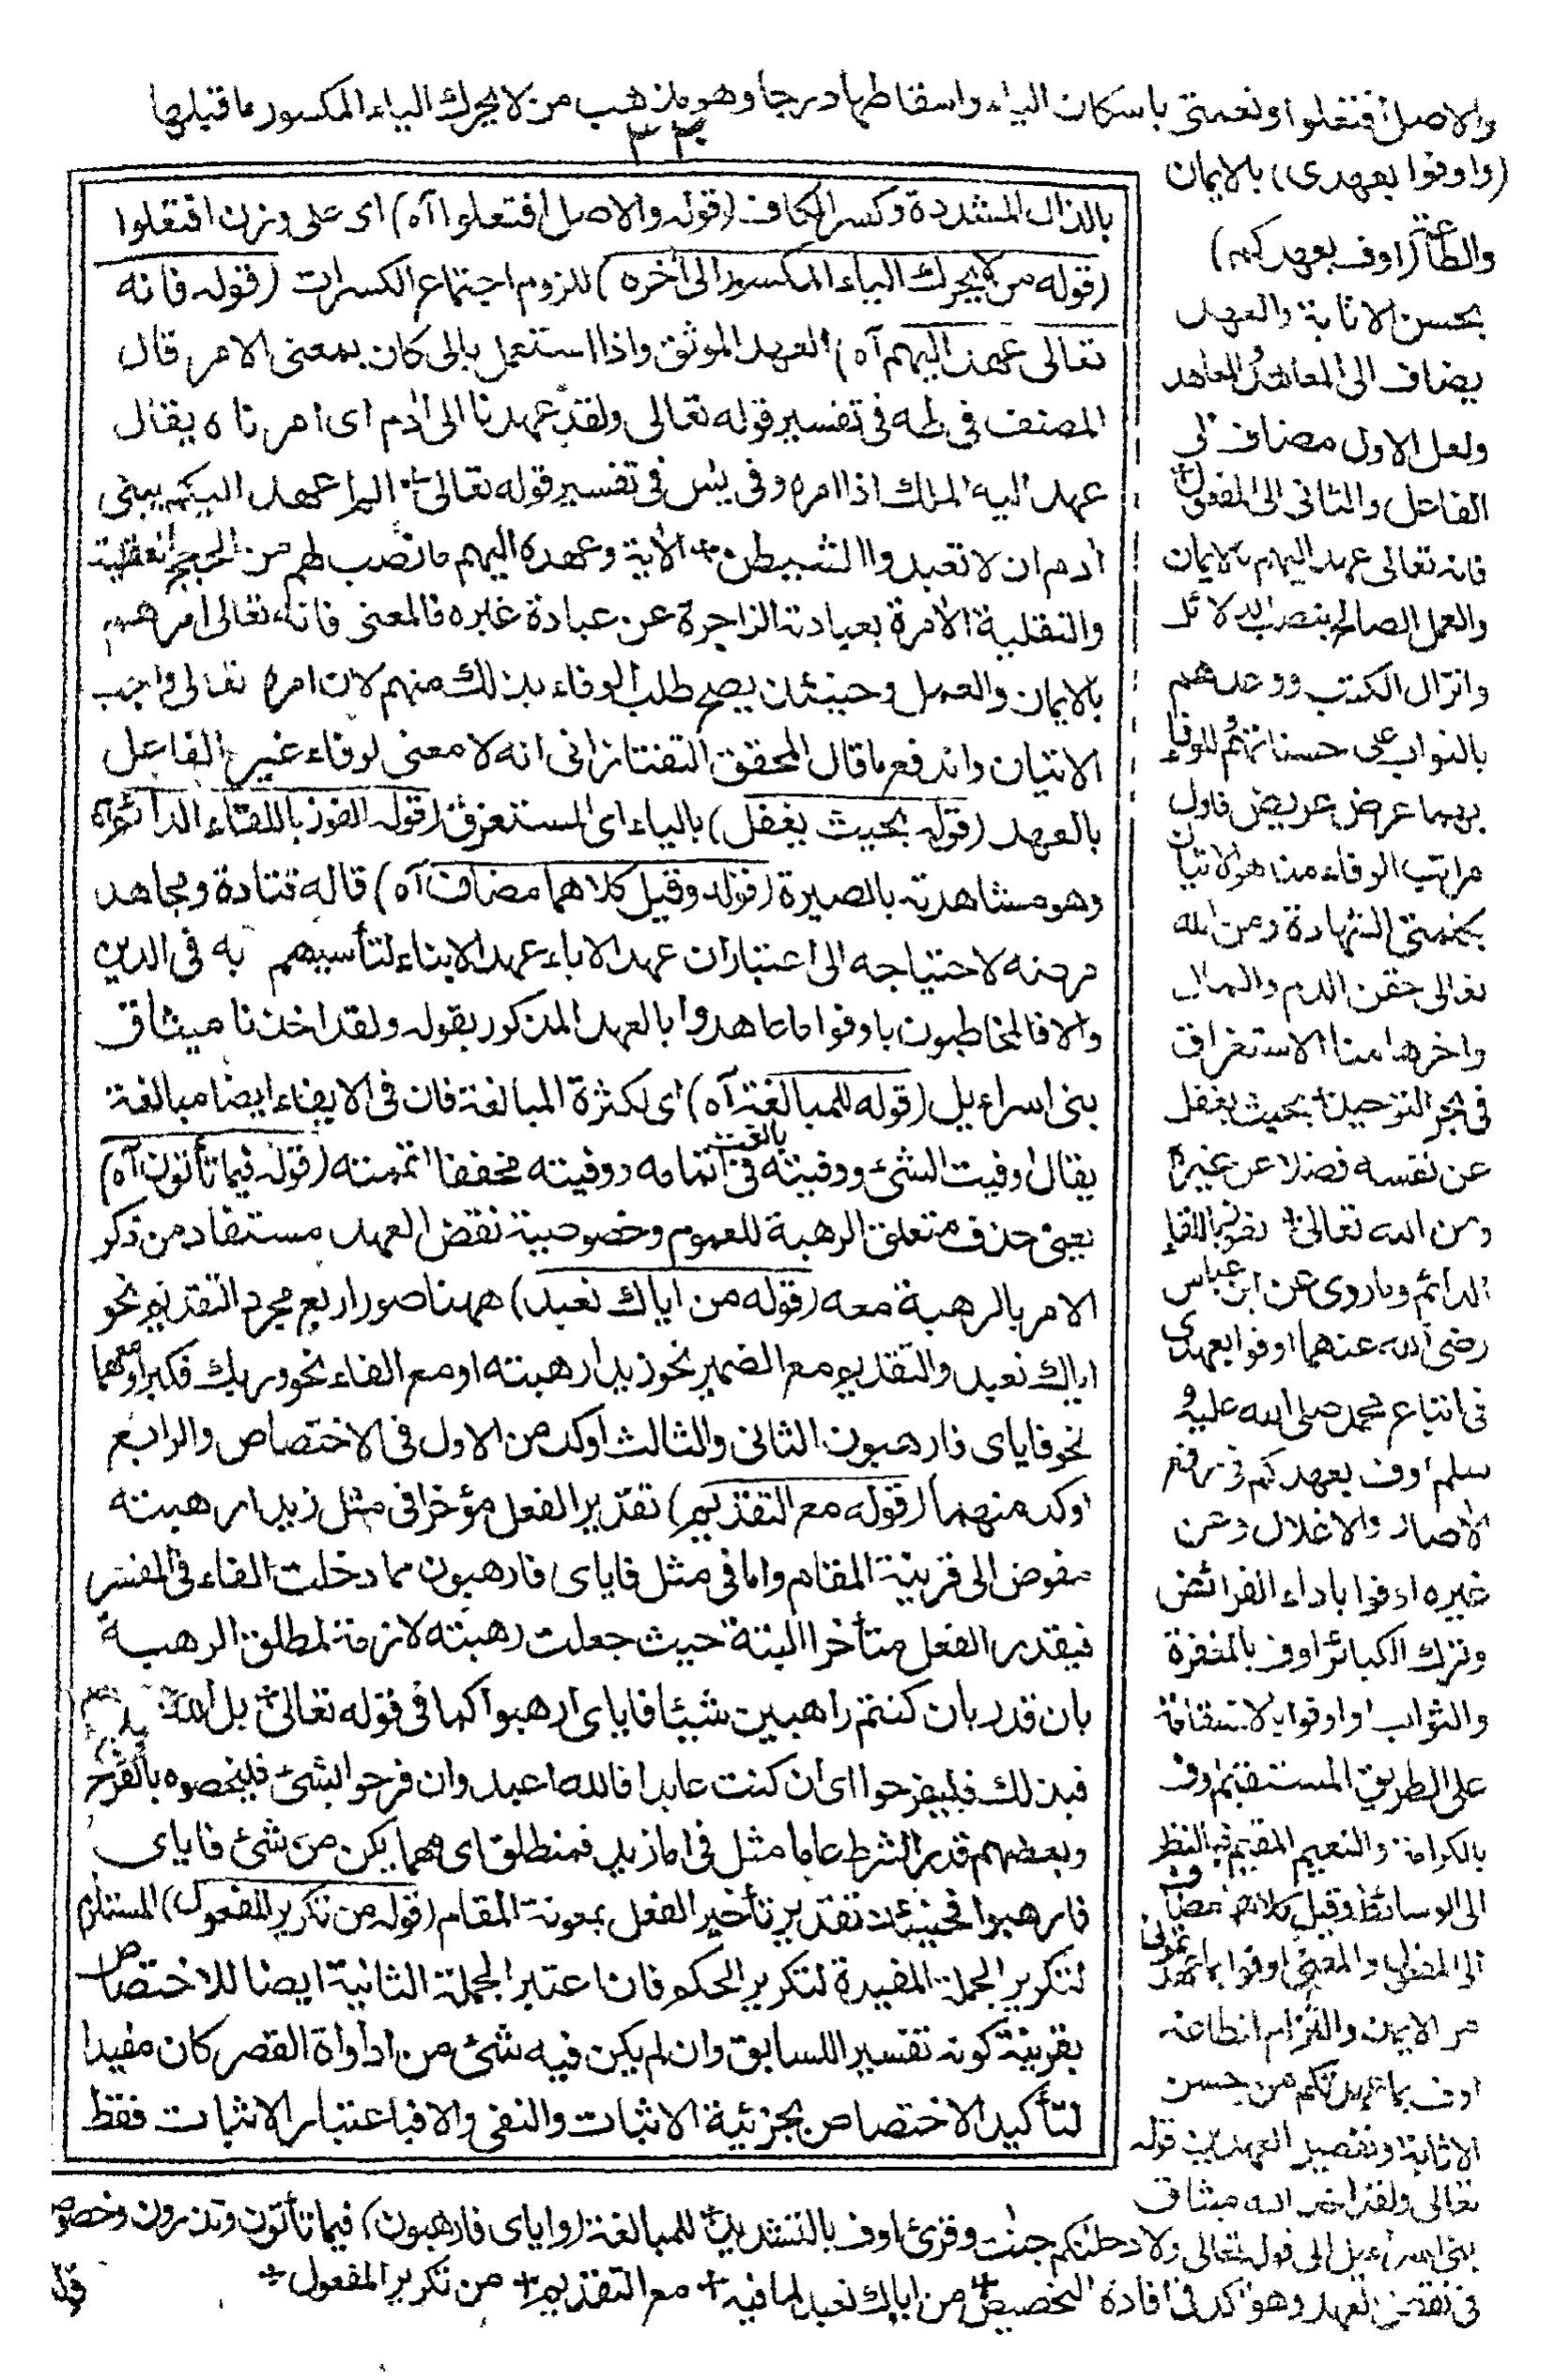 والاصل افتعلوا ونعمتى باسكان الياء واسقاطها درجا وهو مذهب من لا يحرك الياء المكسور ما قبلها
٣٣٠
(واوفوا بعهدى) بالايمان
والطاعة (اوف بعهدكم)
بحسن الاثابة والعهد
يضاف الى المعاهد والمعاهد
ولعل الاول مضاف الى
الفاعل والثانى الى المفعول
فانه تعالى عهد اليهم بالايمان
والعمل الصالح بنصب الدلائل
وانزال الكتب ووعدهم
بالثواب على حسناتهم وللوفاء
بهما عرض عريض فاول
مراتب الوفاء منا هو الاتيان
بكلمتى الشهادة ومن الله
تعالى حقن الدم والمال
واخرها منا الاستغراق
فى بحر التوحيد بحيث يغفل
عن نفسه فضلا عن غيره
ومن الله تعالى الفوز باللقاء
الدائم وما روى عن ابن عباس
رضى الله عنهما اوفوا بعهدى
فى اتباع محمد صلى الله عليه و
سلم اوف بعهدكم فى رفع
الاصار والاغلال وعن
غيره اوفوا باداء الفرائض
وترك الكبائر اوف بالمغفرة
والثواب او اوفوا بالاستقامة
على الطريق المستقيم اوف
بالكرامة والنعيم المقيم فبالنظر
الى الوسائط وقيل كلاهما مضاف
الى المفعول والمعنى اوفوا بما عاهدتمونى
من الايمان والتزام الطاعة
اوف بما عاهدتكم من حسن
الاثابة وتفصيل العهدين قوله
تعالى ولقد اخذ الله ميثاق
بنى اسراءيل الى قوله تعالى ولادخلنكم جنت وقرئ اوف بالتشديد للمبالغة (واياى فارهبون) فيما تأتون وتذرون وخصوصا
فى نقض العهد وهو اكد فى افادة التخصيص من اياك نعبد لما فيه مع التقديم من تكرير المفعول
بالذال المشددة وكسر الكاف (قوله والاصل افتعلوا اه) اى على وزن افتعلوا
(قوله من لا يحرك الياء المكسور الى آخره) للزوم اجتماع الكسرات (قوله فانه
تعالى عهد اليهم آه) العهد الموثق واذا استعمل بالى كان بمعنى الامر قال
المصنف فى طه فى تفسير قوله تعالى ولقد عهدنا الى ادم اى امرناه يقال
عهد اليه الملك اذا امره وفى يس فى تفسير قوله تعالى الم اعهد اليكم يبنى
ادم ان لا تعبدوا الشيطن الاية وعهده اليهم ما نصب لهم من الحجج العقلية
والنقلية الآمرة بعبادته الزاجرة عن عبادة غيره فالمعنى فانه تعالى امرهم
بالايمان والعمل وحينئذ يصح طلب الوفاء بذلك منهم لان امره تعالى واجب
الاتيان واندفع ما قال المحقق التفتازانى انه لا معنى لوفاء غير الفاعل
بالعهد (قوله بحيث يغفل) بالياء اى المستغرق (قوله الفوز باللقاء الدائم آه
وهو مشاهدته بالصيرة (قوله وقيل كلاهما مضاف آه) قاله قتادة ومجاهد
مرضه لاحتياجه الى اعتبار ان عهد الاباء عهد الابناء لتأسيهم به فى الدين
والا فالمخاطبون باوفوا ما عاهدوا بالعهد المذكور بقوله ولقد اخذنا ميثاق
بنى اسراءيل (قوله للمبالغة آه) اى لكثرة المبالغة فان فى الايفاء ايضا مبالغة
يقال اوفيت الشئ ووفيته بالغت فى اتمامه ووفيته مخففا اتممته (قوله فيما تأتون آه)
يعنى حذف متعلق الرهبة للعموم وخصوصية نقض العهد مستفاد من ذكر
الامر بالرهبة معه (قوله من اياك نعبد) ههنا صور اربع مجرد التقديم نحو
اياك نعبد والتقديم مع الضمير نحو زيدا رهبته او مع الفاء نحو وربك فكبر او معهما
نحو فاياى فارهبون الثانى والثالث اوكد من الاول فى الاختصاص والرابع
اوكد منهما (قوله مع التقديم) تقدير الفعل مؤخرا فى مثل زيدا رهبته
مفوض الى قرينة المقام واما فى مثل فاياى فارهبون مما دخلت الفاء فى المفسر
فيقدر الفعل متأخرا البتة حيث جعلت رهبته لازمة لمطلق الرهبة
بان قدر بان كنتم راهبين شيئا فاياى ارهبوا كما فى قوله تعالى بل الله
فبذلك فليفرحوا اى ان كنت عابدا فالله اعبد وان فرحوا بشئ فليخصوه بالفرح
وبعضهم قدر الشرط عاما مثل فى اما زيد فمنطلق اى مهما يكن من شئ فاياى
فارهبوا فحينئذ تقدير تأخير الفعل بمعونة المقام (قوله من تكرير المفعول) المستلزم
لتكرير الجملة المفيدة لتكرير الحكم فان اعتبر الجملة الثانية ايضا للاختصاص
بقرينة كونه تفسير اللسابق وان لم يكن فيه شئ من ادأواة القصر كان مفيدا
لتأكيد الاختصاص بجزئية الاثبات والنفى والا فباعتبار الاثبات فقط